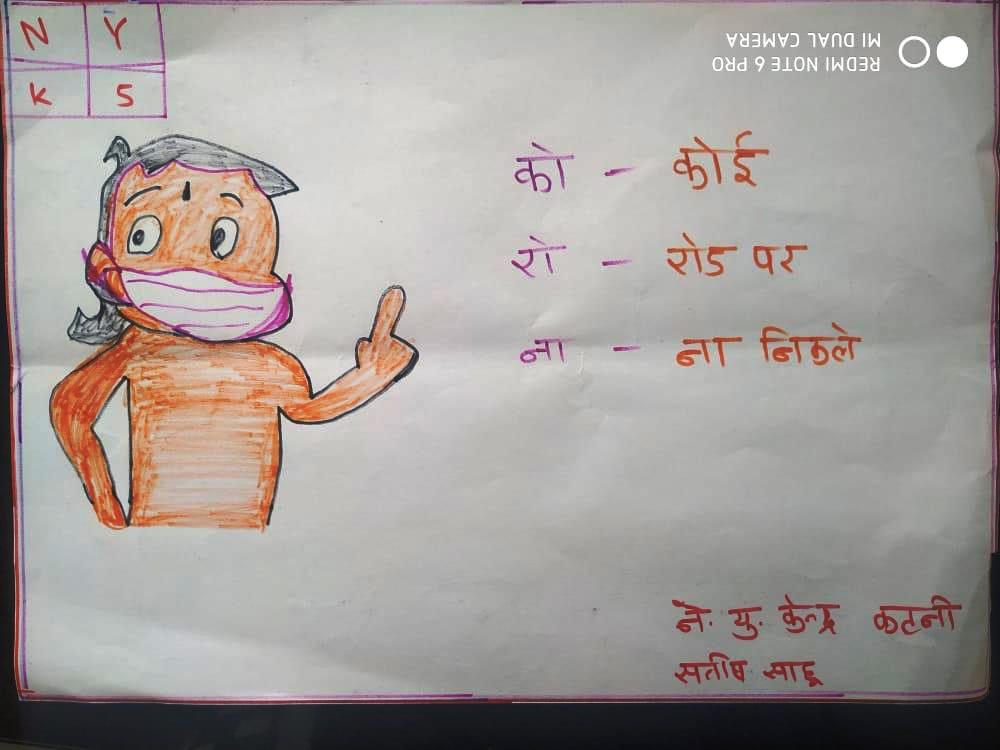 N Y
K S
को - कोई
रो - रोड पर
ना - ना निकले
ने. यु. केन्द्र कटनी
सतीष साहू
REDMI NOTE 6 PRO
MI DUAL CAMERA